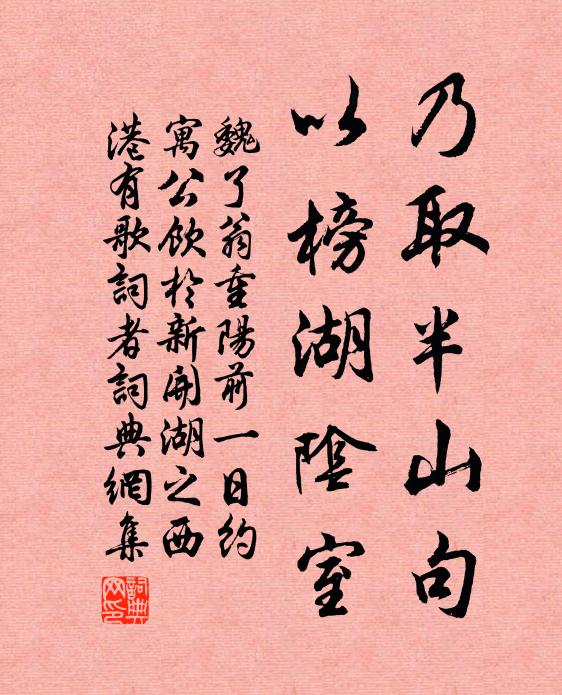 乃取半山句
以榜湖陰室
魏了翁重陽前一日約
寓公飲於新開湖之西
港有歌詞者詞典網集
詞典
网印